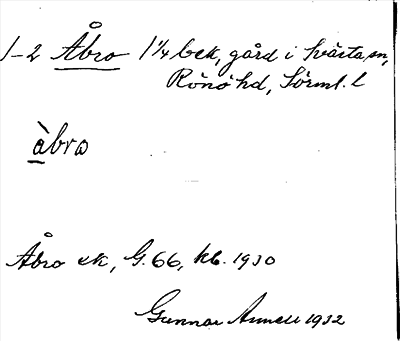 1-2 Åbro 1¼ bek, gård i Svärta sn,
Rönö hd, Sörml. l
àbro
Åbro ek, G. 66, kb. 1930
Gunnar Annell 1932